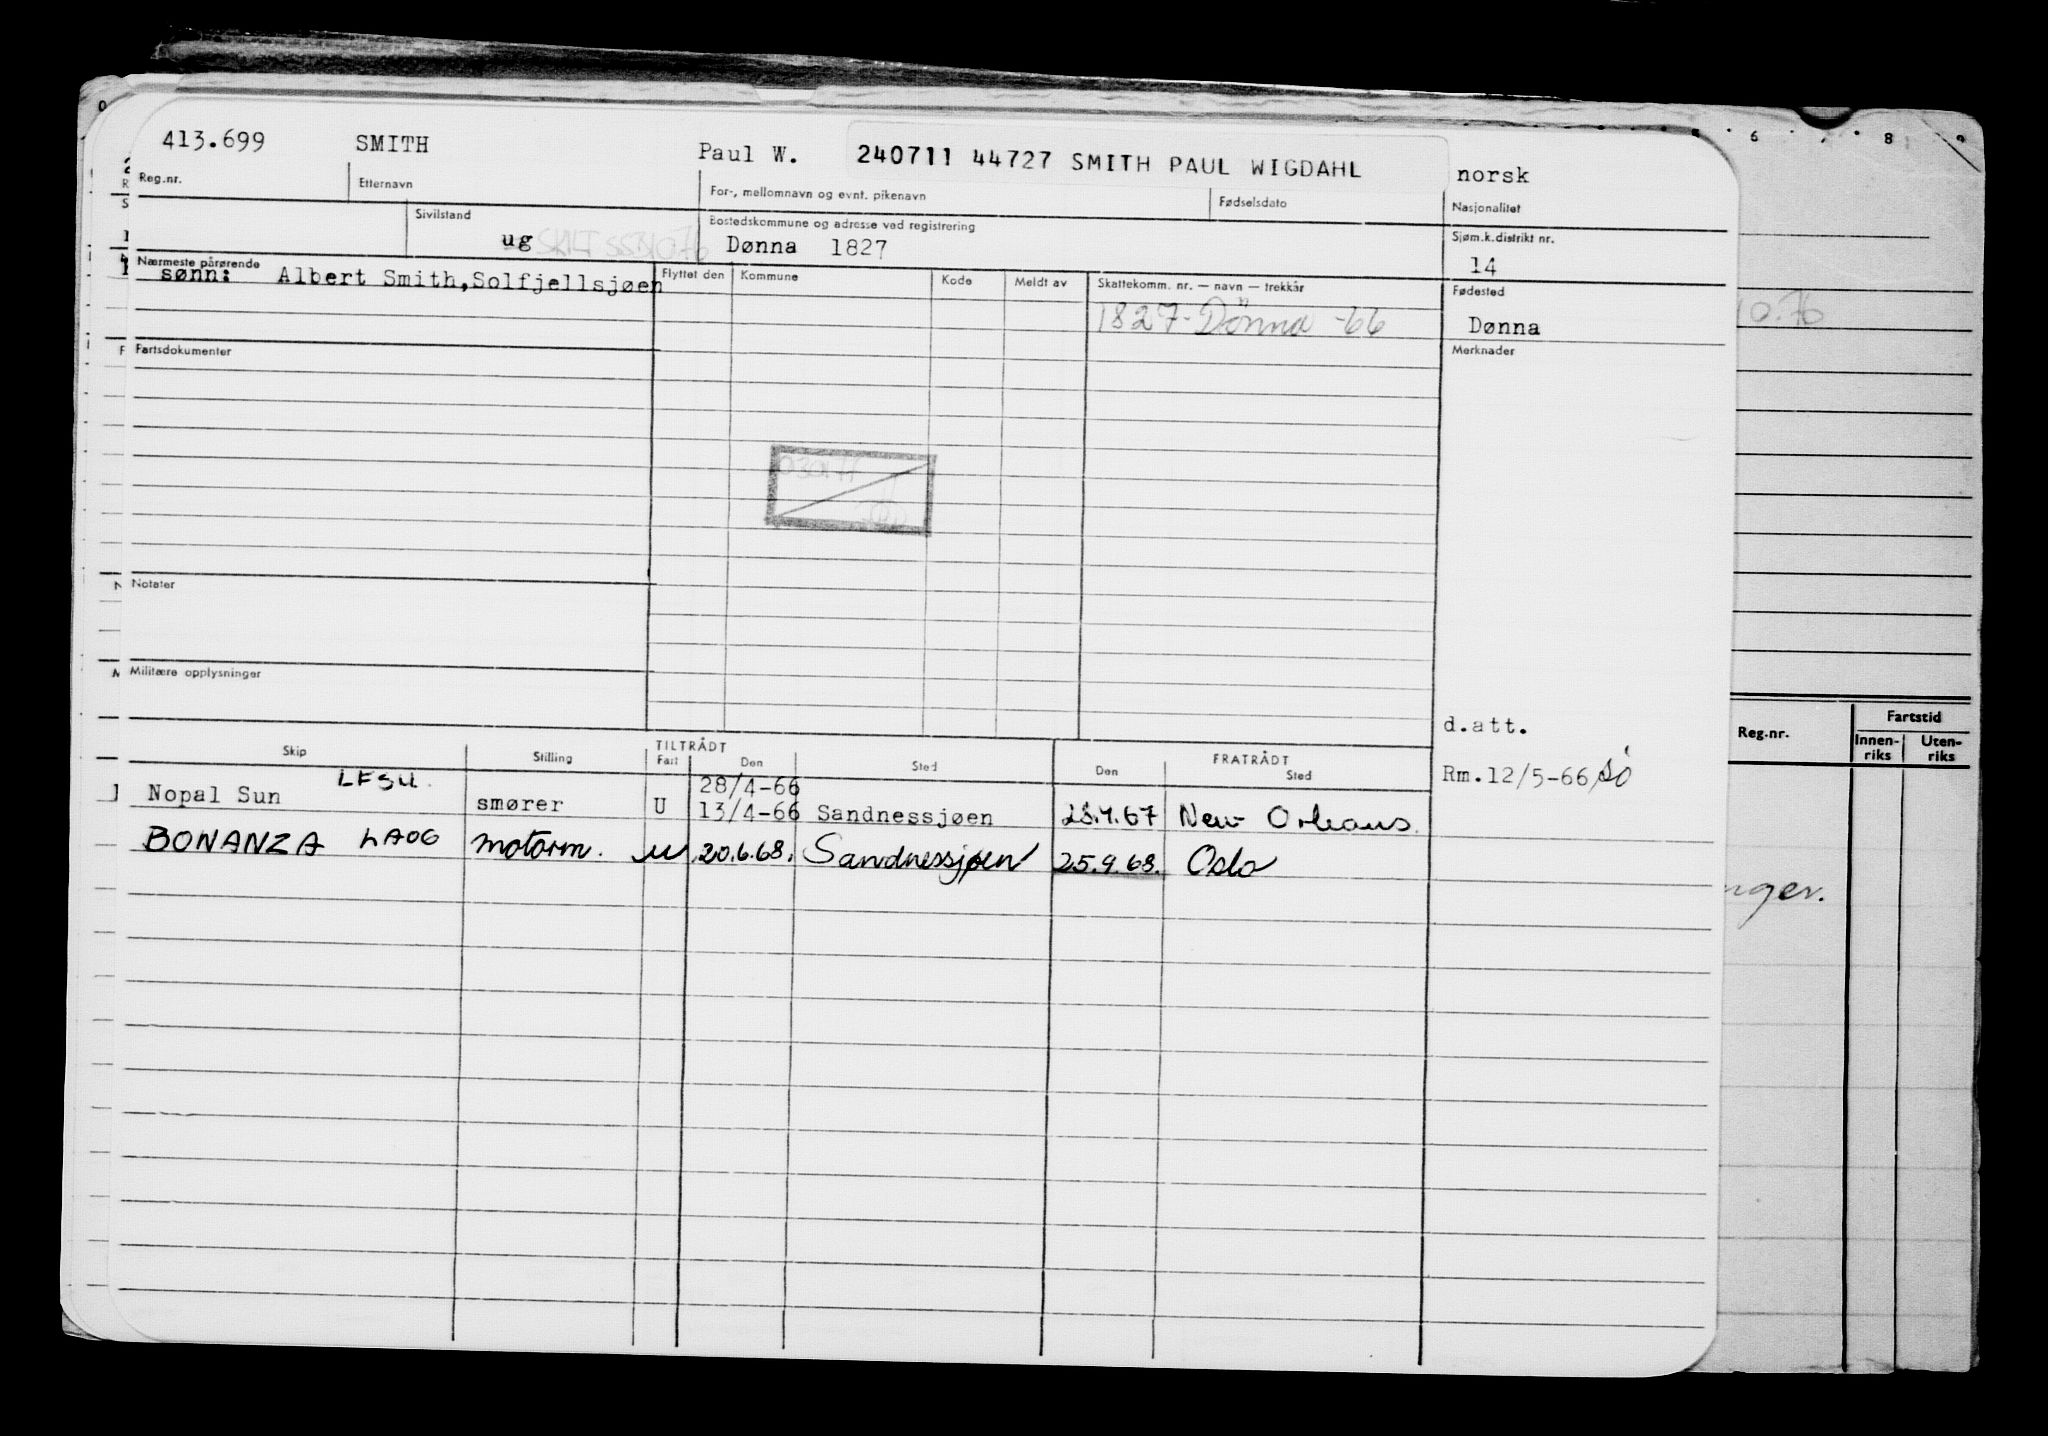 413.699 SMITH Paul W. 240711 44727 SMITH PAUL WIGDAHL norsk
Reg.nr. Etternavn For-, mellomnavn og evnt. pikenavn Fødselsdato Nasjonalitet
Sivilstand Bostedskommune og adresse ved registrering Sjøm.k.distrikt nr.
ug Dønna 1827 14
Nærmeste pårørende Flyttet den Kommune Kode Meldt av Skattekomm. nr. — navn — trekkår Fødested
sønn: Albert Smith,Solfjellsjøen
1827-Dönna -66 Dønna
Fartsdokumenter Merknader
Notater
Militære opplysninger
d.att.
Skip Stilling TILTRÅDT FRATRÅDT
Fart Den Sted Den Sted
Rm.12/5-66
28/4-66
Nopal Sun LFSU. smører U 13/4-66 Sandnessjøen 28.4.67 New Orleans.
BONANZA LAOG motorm. u 20.6.68. Sandnessjøen 25.9.68. Oslo
6 8 9
10.76
Reg.nr. Fartstid
Innen-riks Uten-riks
nger.